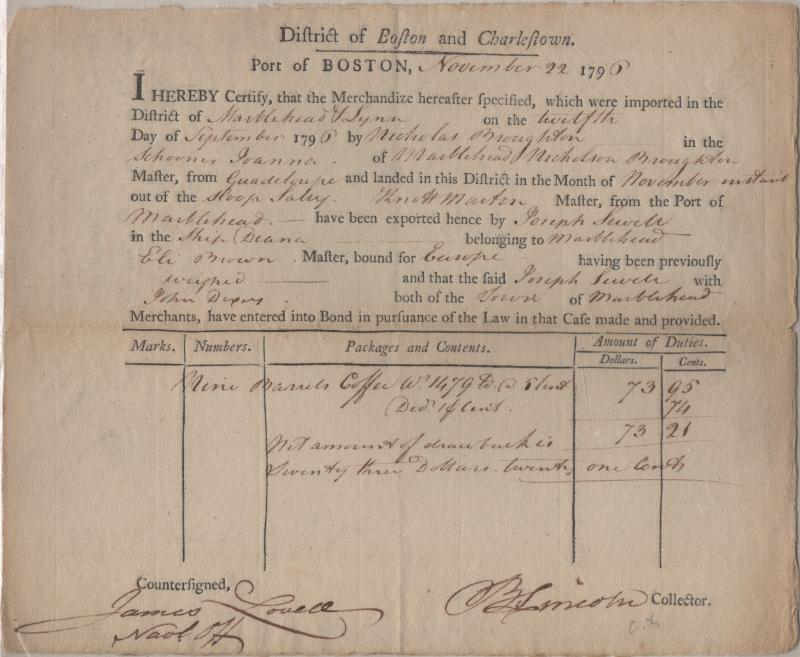 Diſtrict of Boſton and Charleſtown.
Port of BOSTON, November 22 1796
I HEREBY Certify, that the Merchandize hereafter ſpecified, which were imported in the
Diſtrict of Marblehead & Lynn on the twelfth
Day of September 1796 by Nicholas Broughton in the
Schooner Joanna of Marblehead Nicholson Broughton
Maſter, from Guadeloupe and landed in this Diſtrict in the Month of November instant
out of the Sloop Saley. Knott Marten Maſter, from the Port of
Marblehead. have been exported hence by Joseph Sewell
in the Ship Deana belonging to Marblehead
Eli Brown. Maſter, bound for Europe having been previouſly
weighed and that the ſaid Joseph Sewell with
John Dixey. both of the Town of Marblehead
Merchants, have entered into Bond in purſuance of the Law in that Caſe made and provided.
Marks. Numbers. Packages and Contents. Amount of Duties.
Dollars. Cents.
Nine Barrels Coffee Wt. 1479 lb. @ 5 Cent 73 95
Ded. 1 ⅌ Cent. 74
73 21
Net amount of drawback is
Seventy three Dollars. twenty one Cents
Counterſigned,
James Lovell
Navl. Off
B Lincoln Collector.